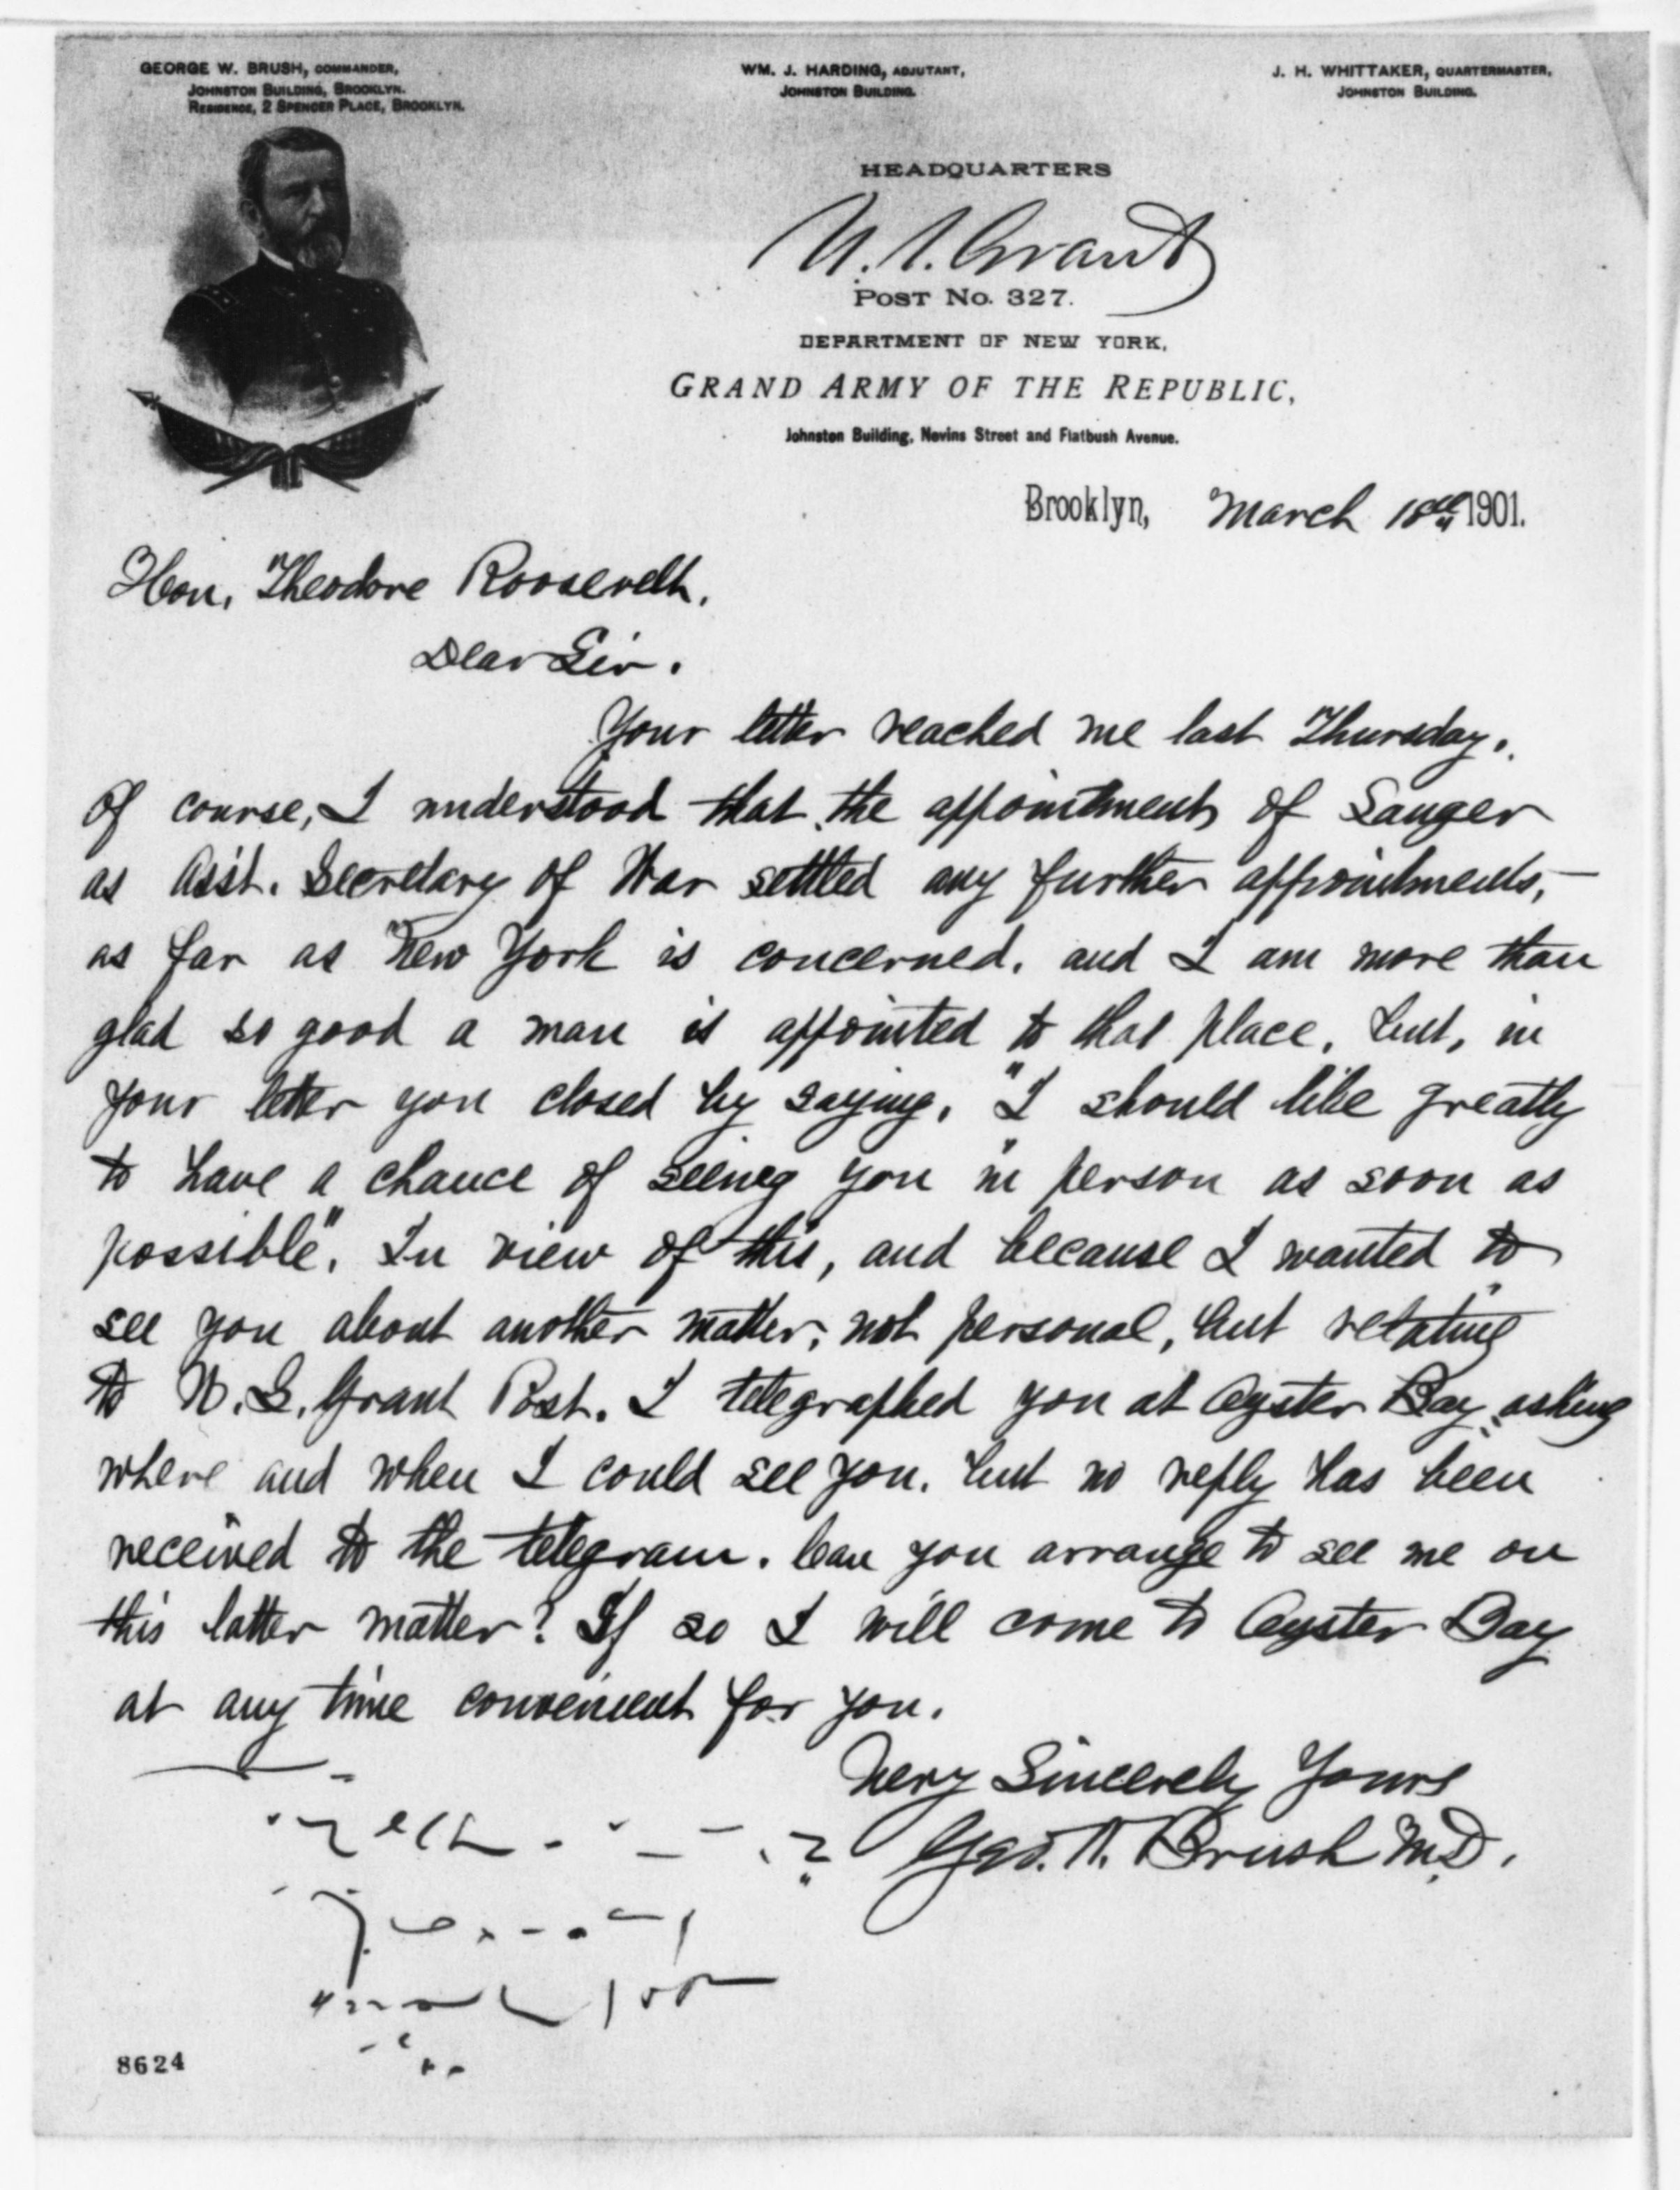 GEORGE W. BRUSH, COMMANDER,
JOHNSTON BUILDING, BROOKLYN.
RESIDENCE, 2 SPENCER PLACE, BROOKLYN.
WM. J. HARDING, ADJUTANT,
JOHNSTON BUILDING.
J. H. WHITTAKER, QUARTERMASTER,
JOHNSTON BUILDING.
HEADQUARTERS
U. S. Grant
POST No. 327.
DEPARTMENT OF NEW YORK,
GRAND ARMY OF THE REPUBLIC,
Johnston Building, Nevins Street and Flatbush Avenue.
Brooklyn, March 18th 1901.
Hon. Theodore Roosevelt.
Dear Sir.
Your letter reached me last Thursday.
Of course, I understood that the appointment of Sanger
as Ass't. Secretary of War settled any further appointments,—
as far as New York is concerned. and I am more than
glad so good a man is appointed to that place. but, in
your letter you closed by saying, "I should like greatly
to have a chance of seeing you in person as soon as
possible". In view of this, and because I wanted to
see you about another matter, not personal, but relating
to U. S. Grant Post. I telegraphed you at Oyster Bay, asking
where and when I could see you. but no reply has been
received to the telegram. Can you arrange to see me on
this latter matter? If so I will come to Oyster Bay
at any time convenient for you.
Very Sincerely Yours
Geo. W. Brush M.D.
8624